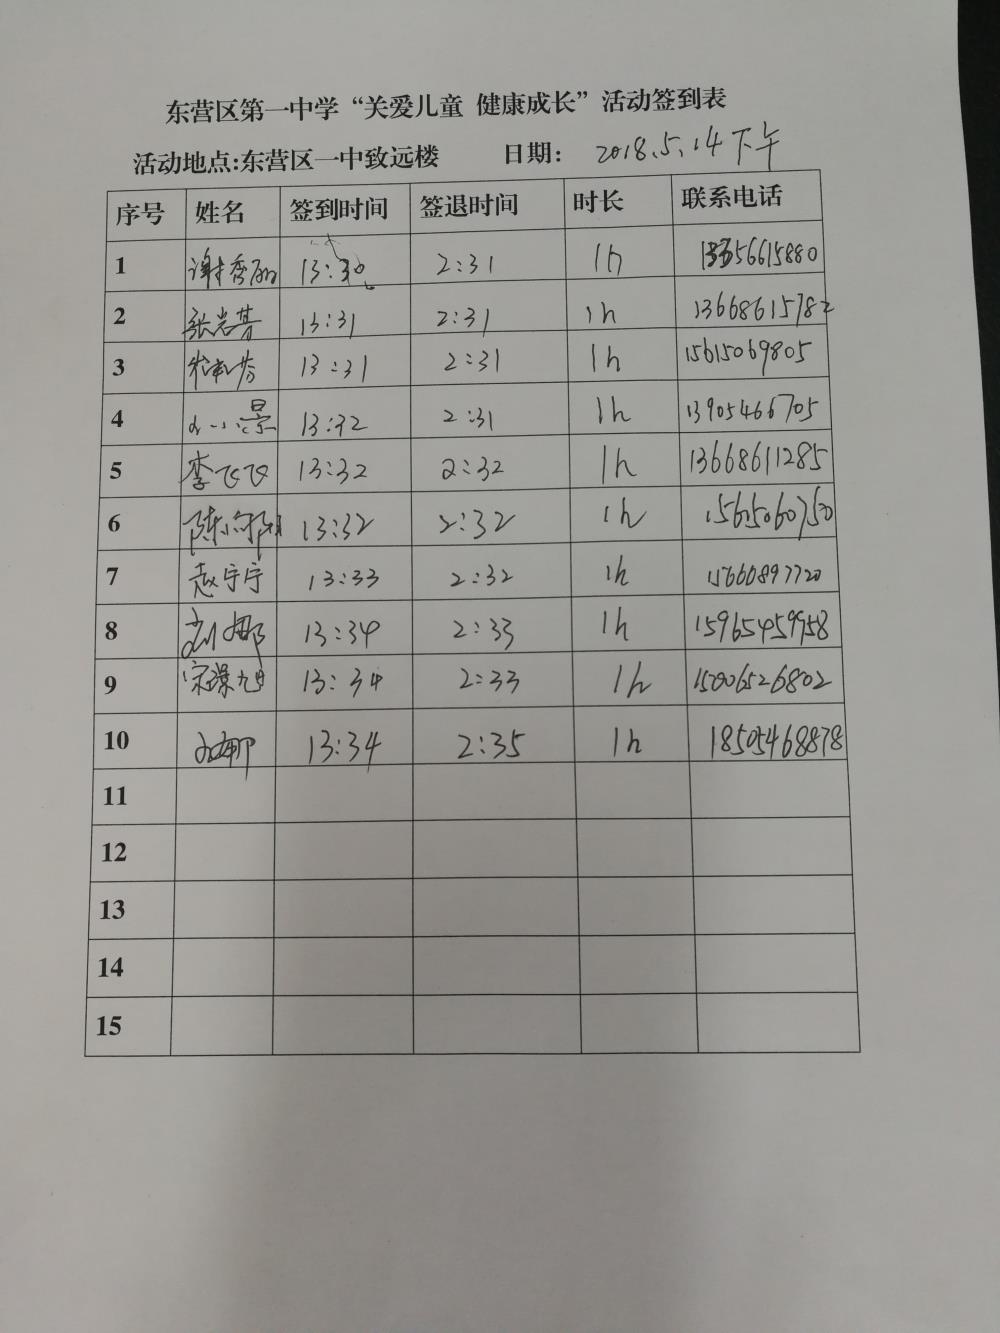 东营区第一中学“关爱儿童 健康成长”活动签到表
活动地点:东营区一中致远楼 日期: 2018.5.14下午
序号 姓名 签到时间 签退时间 时长 联系电话
1 谢秀丽 13:30 2:31 1h 13356615880
2 张岩芳 13:31 2:31 1h 13668615782
3 13:31 2:31 1h 15615069805
4 13:32 2:31 1h 13905466705
5 李飞飞 13:32 2:32 1h 13668611285
6 陈 13:32 2:32 1h
7 赵宁宁 13:33 2:32 1h 15660897720
8 刘娜 13:34 2:33 1h 15965459958
9 宋 13:34 2:33 1h 15006526802
10 13:34 2:35 1h 18505468878
11
12
13
14
15